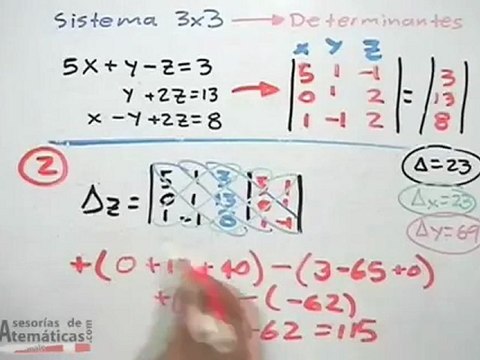 Sistema 3x3 → Determinantes
x y z
5x + y - z = 3
y + 2z = 13
x - y + 2z = 8
5 1 -1
0 1 2
1 -1 2
=
3
13
8
z
Δz =
5 1 3 5 1
0 1 13 0 1
1 -1 8 1 -1
Δ = 23
Δx = 23
Δy = 69
+(0 + 1 + 40) - (3 - 65 + 0)
- (-62)
62 = 115
Asesorías de
Matemáticas.com